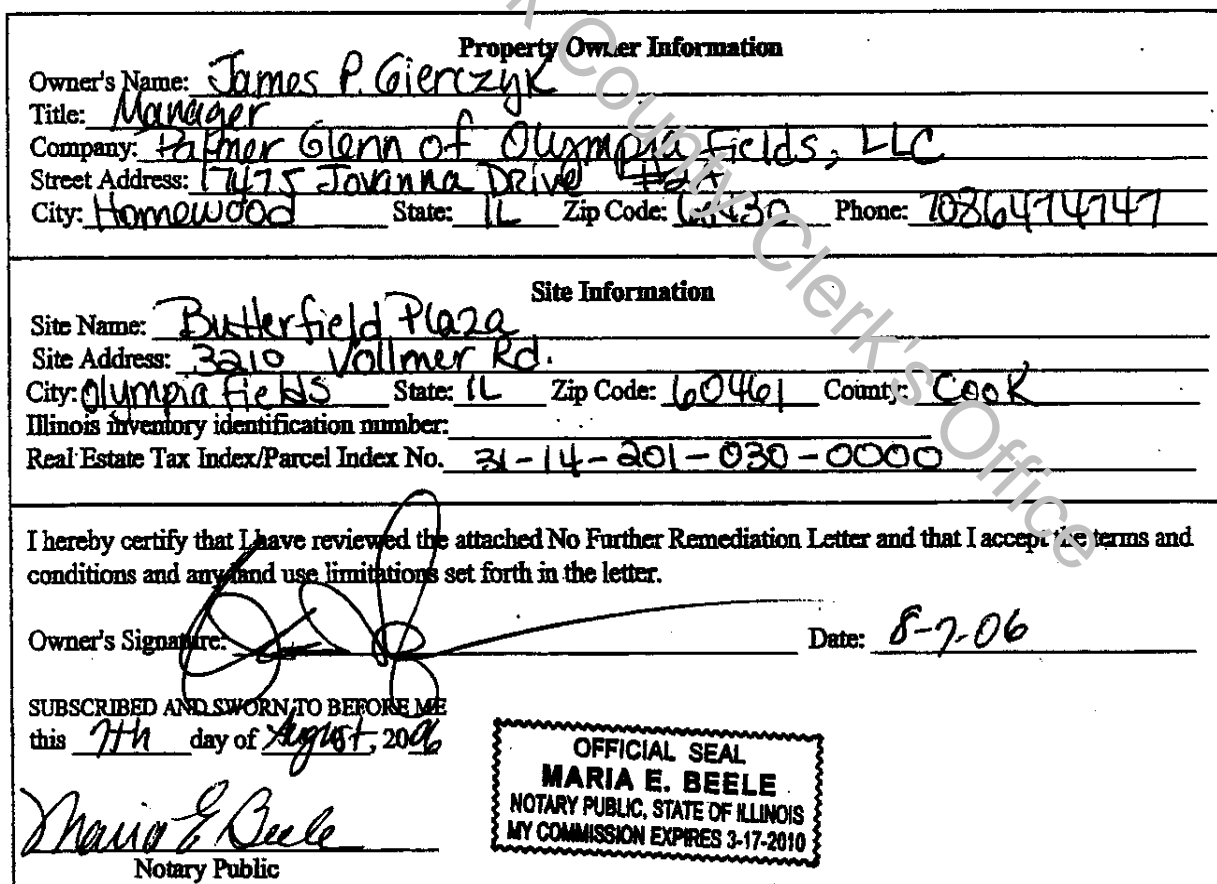 k County Clerk's Office
Property Owner Information
Owner's Name: James P. Gierczyk
Title: Manager
Company: Palmer Glenn of Olympia Fields, LLC
Street Address: 17475 Jovanna Drive #2A
City: Homewood State: IL Zip Code: 60430 Phone: 7086474747
Site Information
Site Name: Butterfield Plaza
Site Address: 3210 Vollmer Rd.
City: Olympia Fields State: IL Zip Code: 60461 County: Cook
Illinois inventory identification number:
Real Estate Tax Index/Parcel Index No. 31-14-201-030-0000
I hereby certify that I have reviewed the attached No Further Remediation Letter and that I accept the terms and
conditions and any land use limitations set forth in the letter.
Owner's Signature: Date: 8-7-06
SUBSCRIBED AND SWORN TO BEFORE ME
this 7th day of August, 2006
OFFICIAL SEAL
MARIA E. BEELE
NOTARY PUBLIC, STATE OF ILLINOIS
MY COMMISSION EXPIRES 3-17-2010
Maria E Beele
Notary Public